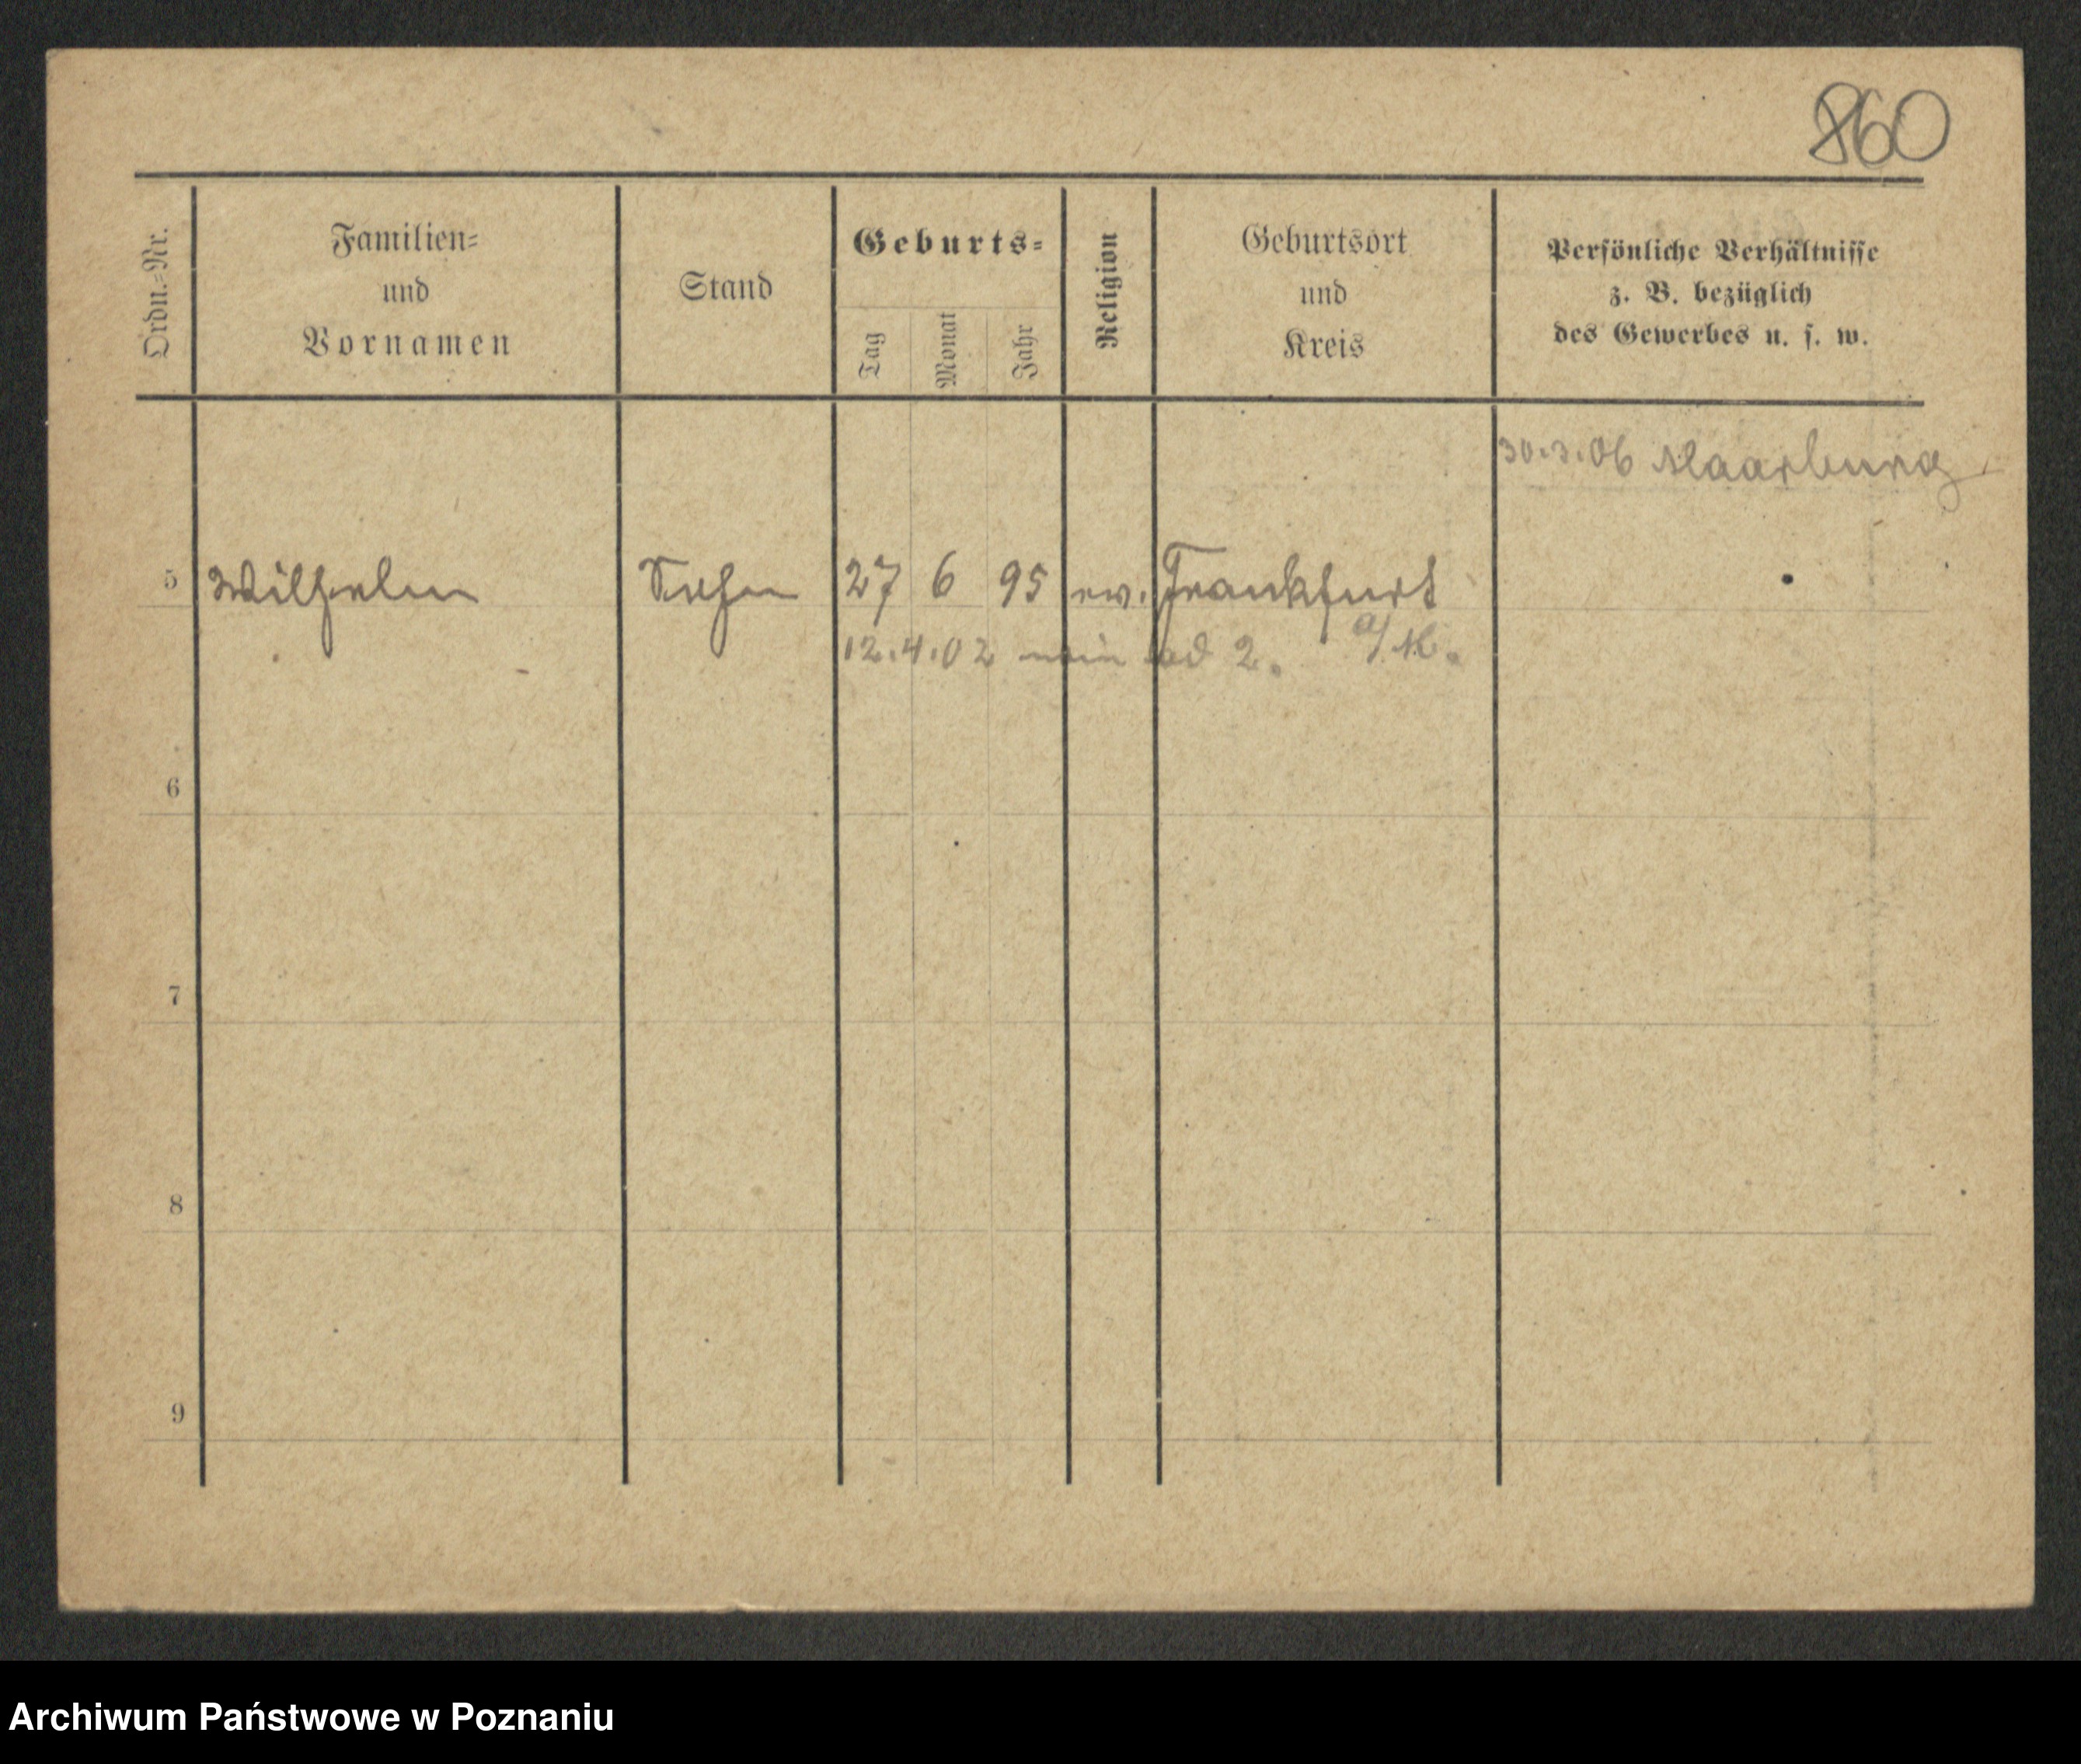 860
Ordn.-Nr.
Familien-
und
Vornamen
Stand
Geburts-
Tag
Monat
Jahr
Religion
Geburtsort
und
Kreis
Persönliche Verhältnisse
z. B. bezüglich
des Gewerbes u. s. w.
30.3.06 Maarburg
5 Wilhelm Sohn 27 6 95 ev. Frankfurt
12.4.02 ad 2. a/M.
6
7
8
9
Archiwum Państwowe w Poznaniu